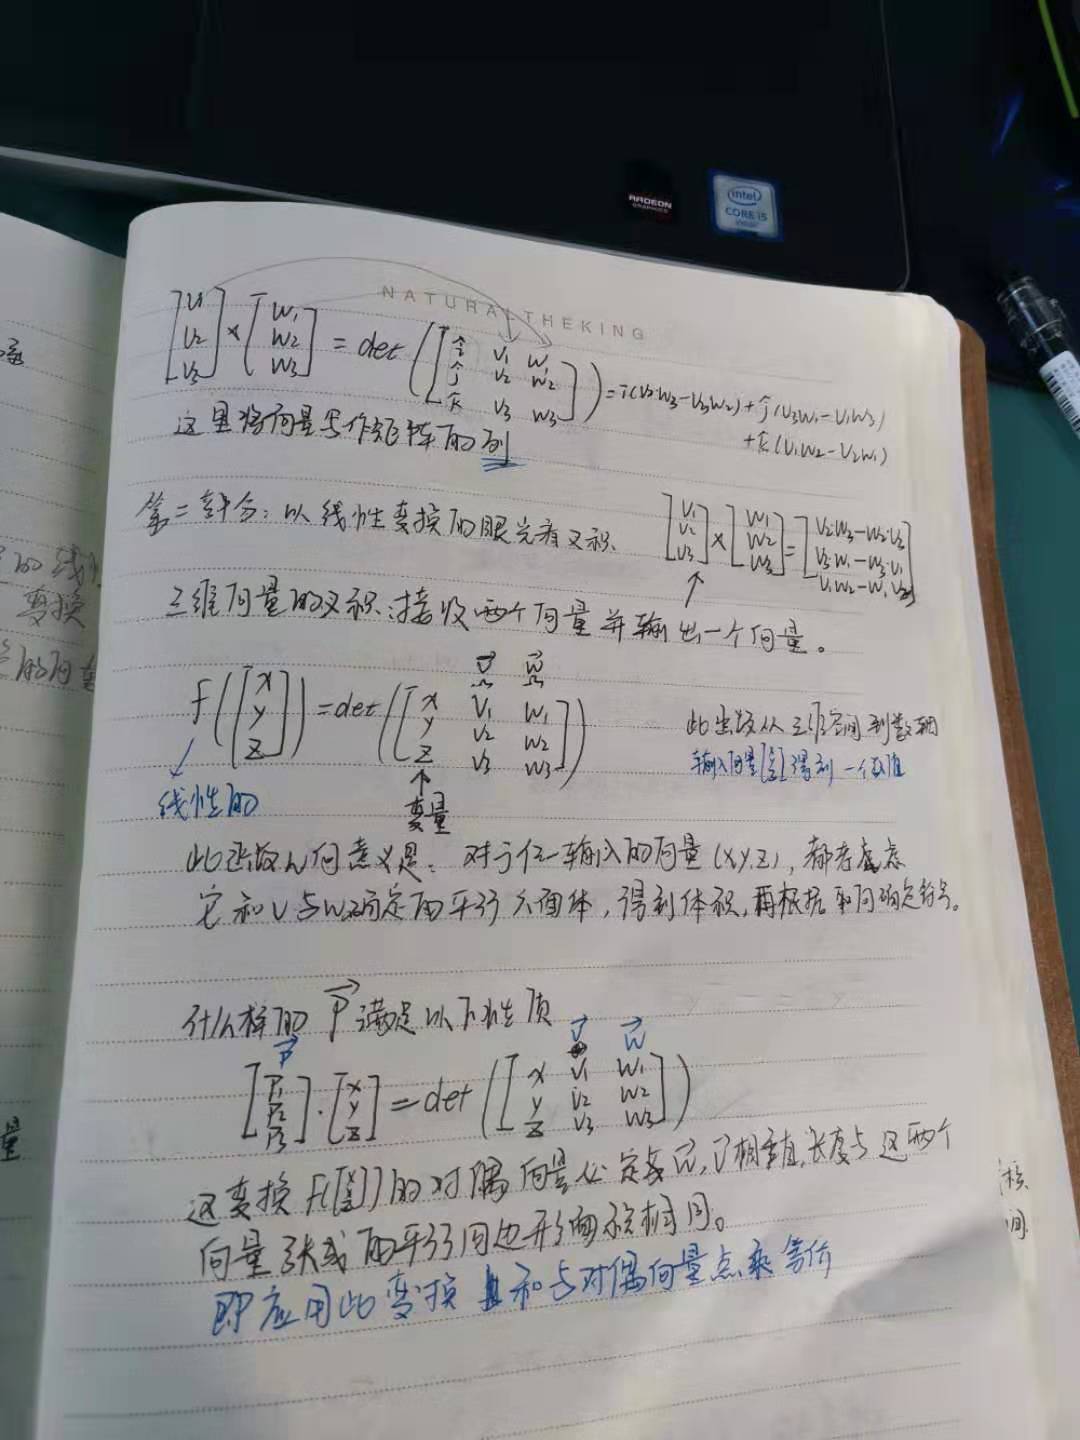 RADEON
GRAPHICS
intel
CORE i5
NATURALTHEKING
[v1 v2 v3] × [w1 w2 w3] = det([î ĵ k̂ v1 v2 v3 w1 w2 w3]) = î(v2w3-v3w2) + ĵ(v3w1-v1w3)
+ k̂(v1w2-v2w1)
这里将向量写作矩阵的列
第二部分:以线性变换的眼光看叉积.
[v1 v2 v3] × [w1 w2 w3] = [v2·w3-w2·v3 v3·w1-w3·v1 v1·w2-w1·v2]
三维向量的叉积:接收两个向量并输出一个向量。
v⃗ w⃗
f([x y z]) = det([x y z v1 v2 v3 w1 w2 w3])
此函数从三维空间到数轴
输入向量[x y z]得到一个数值
线性的
变量
此函数几何意义是:对于任一输入的向量(x,y,z),都考虑
它和v与w确定的平行六面体,得到体积,再根据取向确定符号。
什么样的 p⃗ 满足以下性质
p⃗ v⃗ w⃗
[p1 p2 p3]·[x y z] = det([x y z v1 v2 v3 w1 w2 w3])
这变换f([x y z])的对偶向量必定与w⃗,v⃗相垂直,长度与这两个
向量张成的平行四边形面积相同。
即应用此变换和与对偶向量点乘等价
变换
量